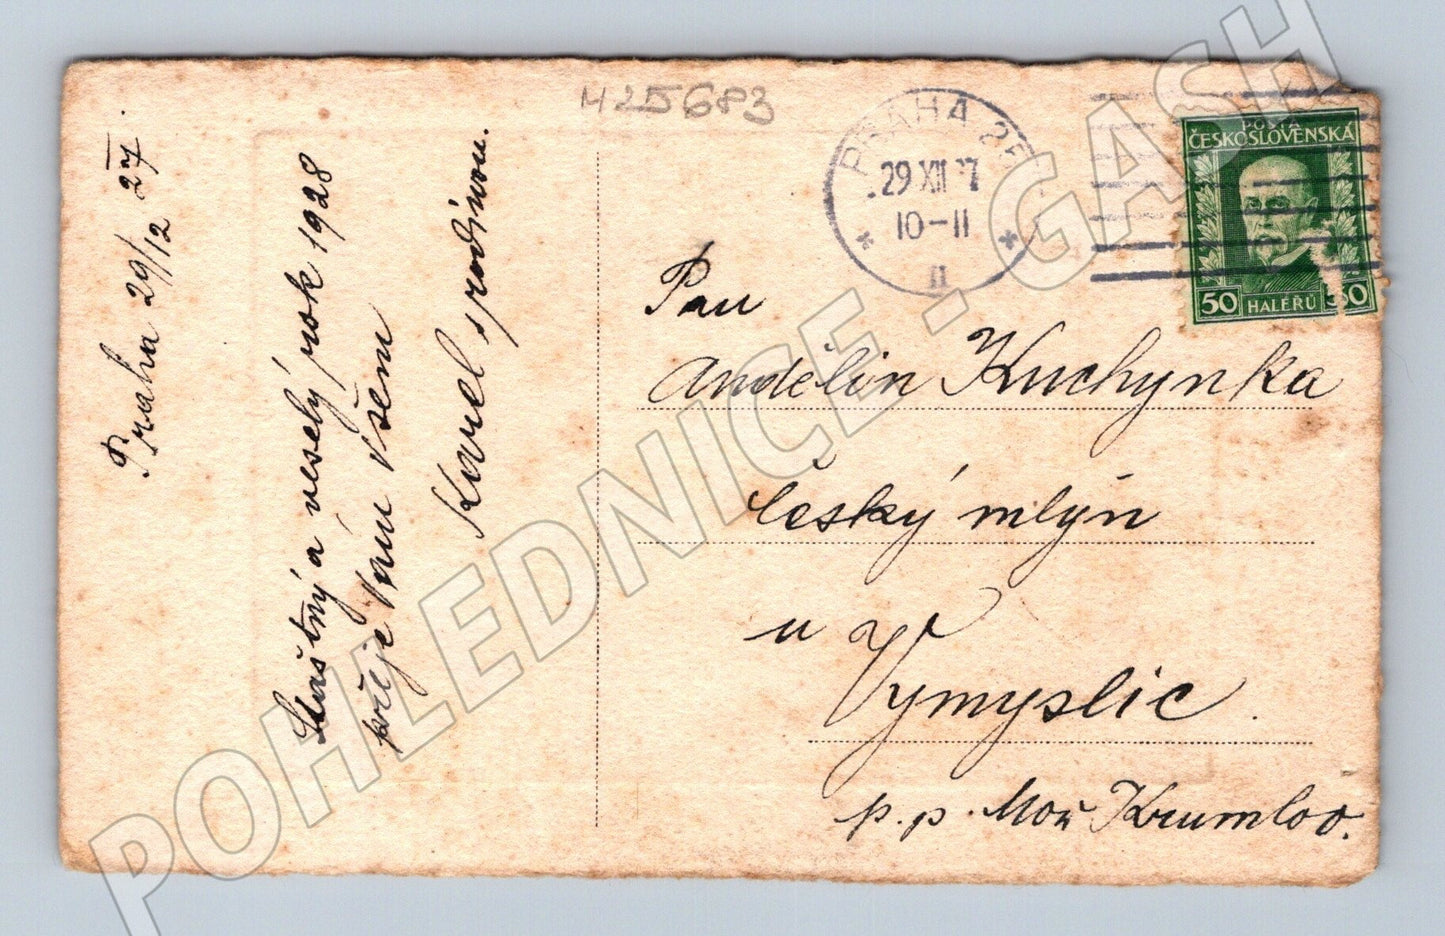 425683
Praha 29/12 27.
Šťastný a veselý rok 1928
přeje Vám všem
Karel s rodinou.
PRAHA 25
29 XII 27
10-11
11
POŠTA
ČESKOSLOVENSKÁ
50 HALÉŘŮ 50
Pan
Andělín Kuchynka
Český mlýn
u Vymyslic.
p. p. Mor Krumlov.
POHLEDNICE - GASH